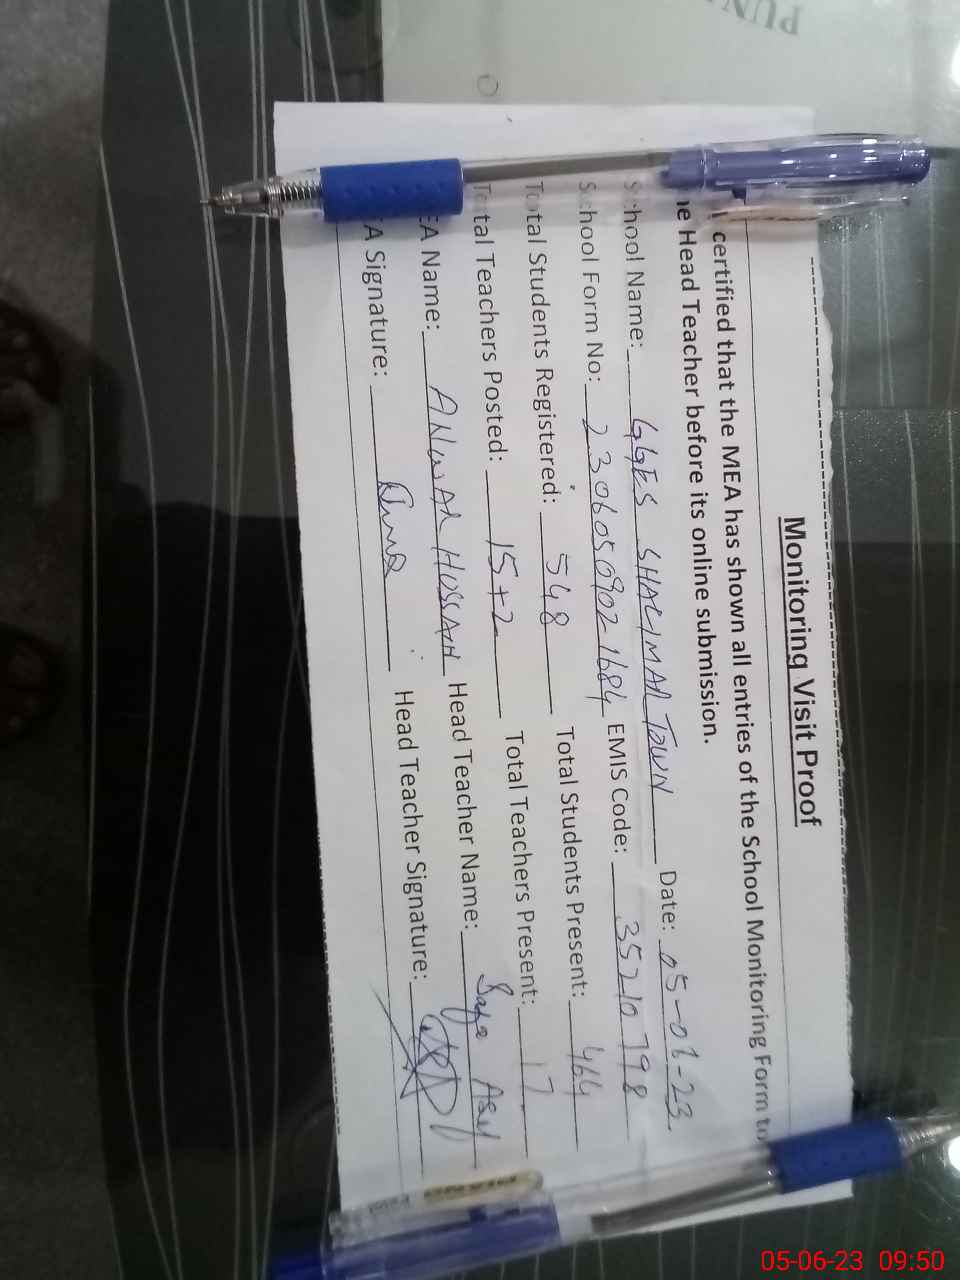 PUN
Monitoring Visit Proof
certified that the MEA has shown all entries of the School Monitoring Form to
he Head Teacher before its online submission.
School Name: GGES SHALIMAR TOWN Date: 05-06-23
School Form No: 23060509021684 EMIS Code: 35210798
Total Students Registered: 548 Total Students Present: 464
Total Teachers Posted: 15+2 Total Teachers Present: 17
EA Name: ANWAR HUSSAIN Head Teacher Name:
EA Signature: Head Teacher Signature:
PIANO
05-06-23 09:50